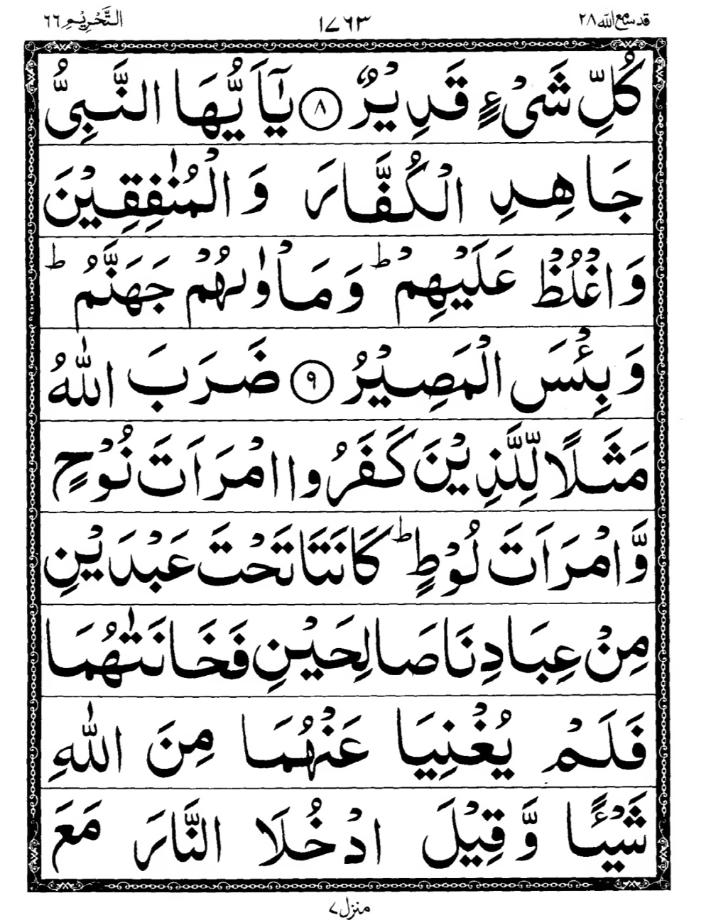 قد سمع الله ٢٨ ١٧٦٣ التحريم ٦٦
كُلِّ شَىْءٍ قَدِيْرٌ ۝٨ يٰۤاَيُّهَا النَّبِىُّ
جَاهِدِ الْكُفَّارَ وَالْمُنٰفِقِيْنَ
وَاغْلُظْ عَلَيْهِمْ ؕ وَمَاْوٰىهُمْ جَهَنَّمُ ؕ
وَبِئْسَ الْمَصِيْرُ ۝٩ ضَرَبَ اللّٰهُ
مَثَلًا لِّلَّذِيْنَ كَفَرُوا امْرَاَتَ نُوْحٍ
وَّامْرَاَتَ لُوْطٍ ؕ كَانَتَا تَحْتَ عَبْدَيْنِ
مِنْ عِبَادِنَا صَالِحَيْنِ فَخَانَتٰهُمَا
فَلَمْ يُغْنِيَا عَنْهُمَا مِنَ اللّٰهِ
شَيْـًٔا وَّقِيْلَ ادْخُلَا النَّارَ مَعَ
منزل ٧